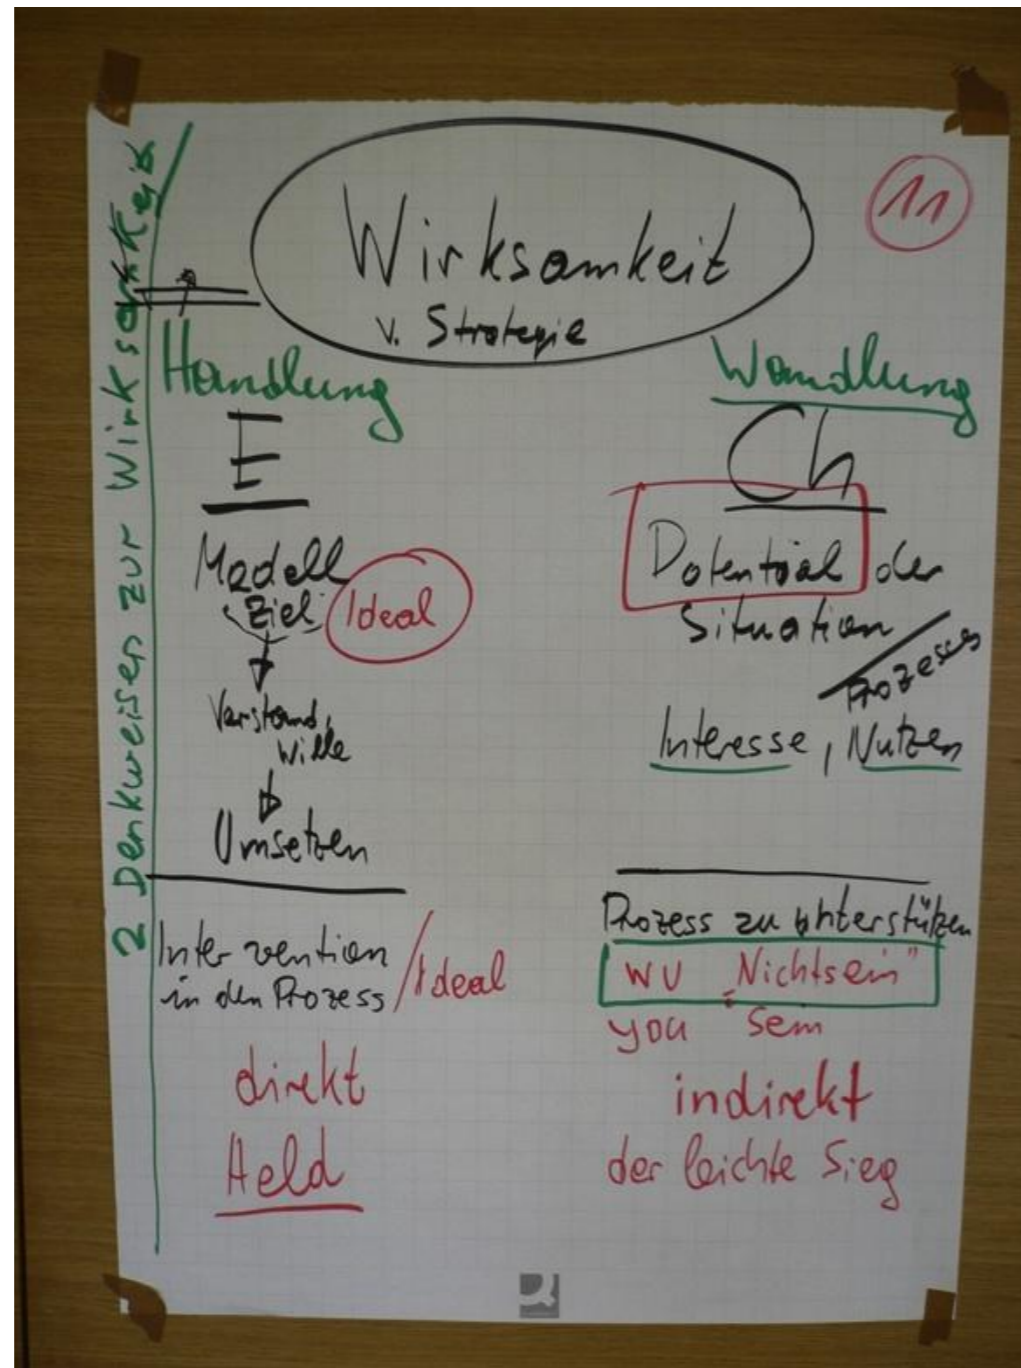 2 Denkweisen zur Wirksamkeit
11
Wirksamkeit
v. Strategie
Handlung
E
Modell
Ziel
Ideal
Verstand,
Wille
Umsetzen
Intervention
in den Prozess / Ideal
direkt
Held
Wandlung
Ch
Potential der
Situation
Prozesses
Interesse, Nutzen
Prozess zu unterstützen
WU „Nichtsein"
you Sein
indirekt
der leichte Sieg